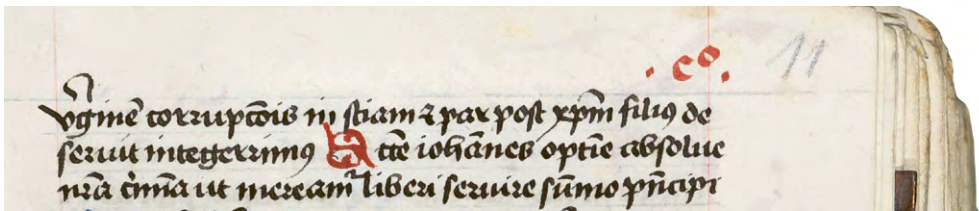 · c⁰ · 11
v̾ginē corrupc̄ois in sc̄iam ⁊ par post xp̄m filiꝰ de
seruit integerrimꝰ Sācte ioh̄annes optīe absolue
nr̄a c̾mīa ut meream̾ liberi seruire sūmo pn̄cipi